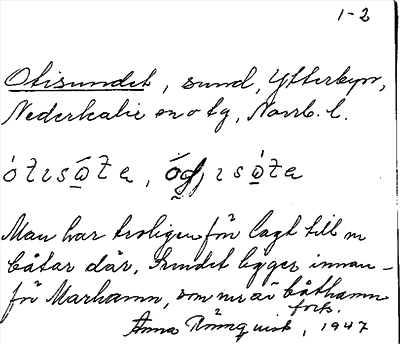 1-2
Otisundet, sund, Ytterbyn,
Nederkalix sn o tg, Norrb. l.
Man har troligen för lagt till m
båtar där, Sundet ligger innan-
för Marhamn, som nu är båthamn
forts.
Anna Rönnquist, 1947